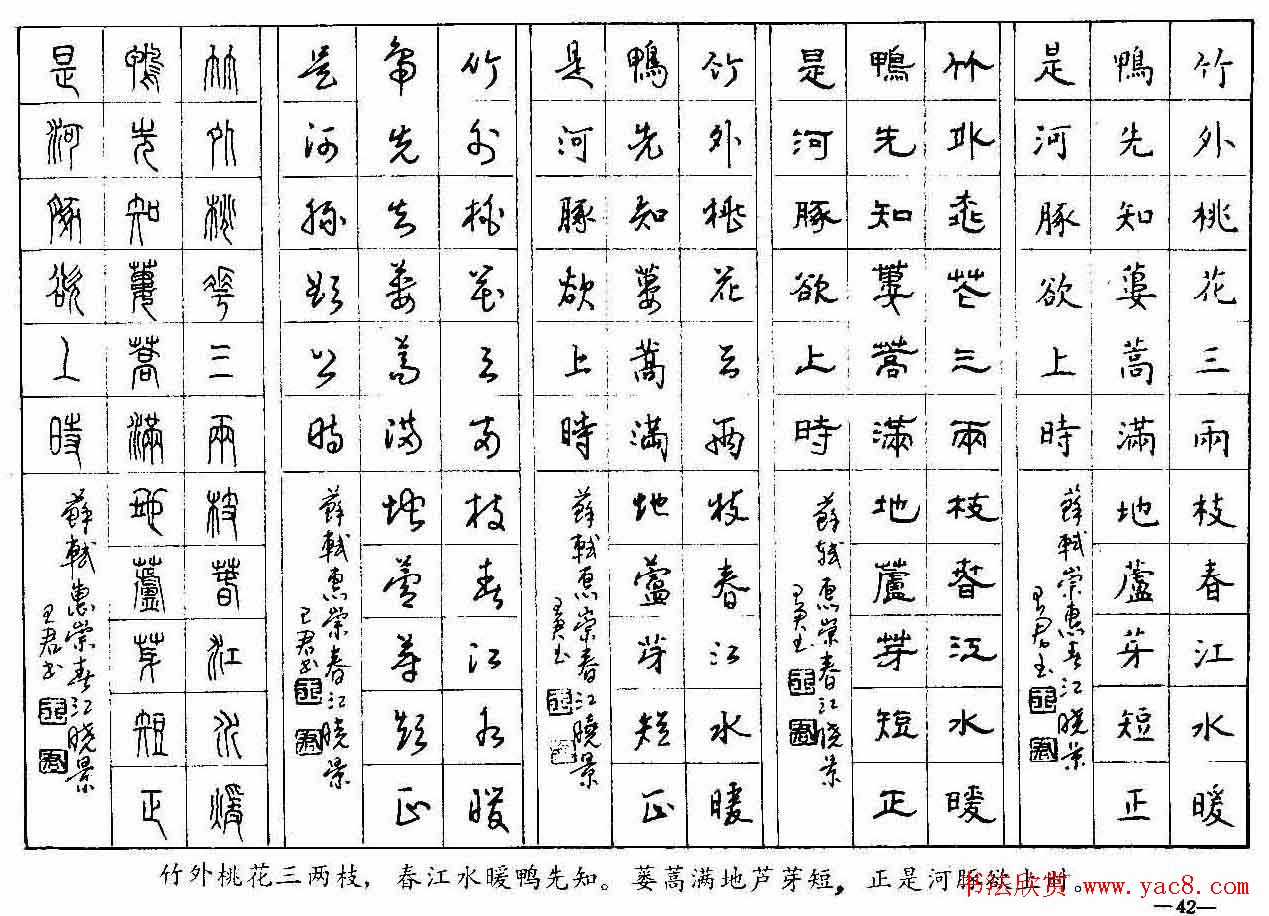 竹外桃花三兩枝春江水暖
鴨先知蔞蒿滿地蘆芽短正
是河豚欲上時
蘇軾崇惠春江晓景
王君书
竹外桃花三兩枝春江水暖
鴨先知蔞蒿滿地蘆芽短正
是河豚欲上時
蘇軾惠崇春江晓景
王君书
竹外桃花三兩枝春江水暖
鴨先知蔞蒿滿地蘆芽短正
是河豚欲上時
蘇軾惠崇春江曉景
王君书
竹外桃花三兩枝春江水暖
鴨先知蔞蒿滿地蘆芽短正
是河豚欲上時
蘇軾惠崇春江晓景
王君书
竹外桃花三兩枝春江水暖
鴨先知蔞蒿滿地蘆芽短正
是河豚欲上時
蘇軾惠崇春江晓景
王君书
竹外桃花三两枝，春江水暖鸭先知。蒌蒿满地芦芽短，正是河豚欲上时。
书法欣赏 www.yac8.com
—42—